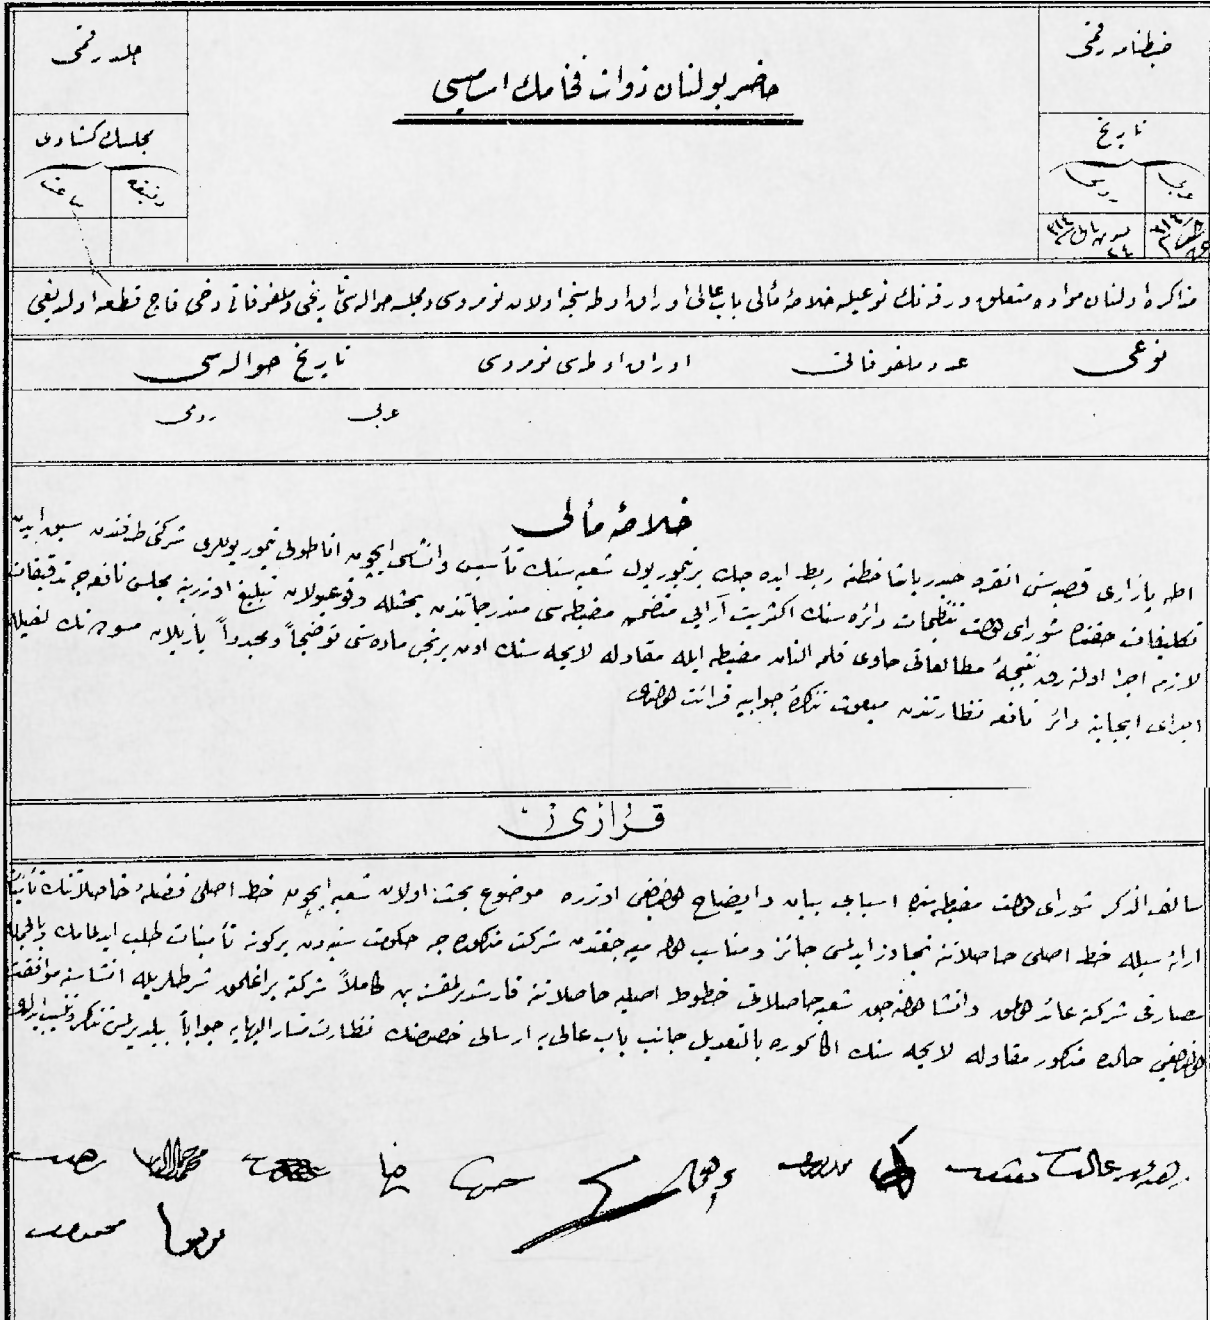 ضبطنامه رقمی
جلد رقمی
حاضر بولنان ذوات فخامك اساميسی
تاريخ
عربی
رومی
مجلسك كشادی
دقیقه
ساعت
مذاكره اولنان مواده متعلق ورقه نك نوعيله خلاصۀ مآلی باب عالی اوراق اوطه سنجه اولان نومروسی و مجلسه حواله سی تاريخی و ملفوفاتی دخی قاچ قطعه اولديغی
نوعی
عدد ملفوفاتی
اوراق اوطه سی نومروسی
تاريخ حواله سی
عربی
رومی
خلاصۀ مآلی
اطه بازاری قصبه سنی انقره حيدرپاشا خطنه ربط ايده جك بر تيموريول شعبه سنك تأسيس وانشاسی ايچون اناطولی تيموريوللری شركتی طرفندن سبق ايدن
تكليفات حقنده شورای دولت تنظيمات دائره سنك اكثريت آرايی متضمن مضبطه سی مندرجاتندن بحثله وقوعبولان تبليغ اوزرينه مجلس نافعه جه تدقيقات
لازمه اجرا اولنه رق نتيجۀ مطالعاتی حاوی قلمه النان مضبطه ايله مقاوله لايحه سنك اون برنجی ماده سنی توضيحاً ومجدداً يازيلان مسوده نك لفيله
اجرای ايجابنه دائر نافعه نظارتندن مبعوث تذكرۀ جوابيه قرائت اولندی
قراری
سالف الذكر شورای دولت مضبطه سنده اسبابی بيان وايضاح اولنديغی اوزره موضوع بحث اولان شعبه ايچون خط اصلی فضلۀ حاصلاتنك تأمينات
ارائه سيله خط اصلی حاصلاتنه تجاوز ايدلمسی جائز ومناسب اوله ميه جغندن شركت مذكوره جه حكومت سنيه دن بركونه تأمينات طلب ايدلمامك وبالجمله
مصارفی شركته عائد اولمق وانشا اولنه جق شعبه حاصلاتی خطوط اصليه حاصلاتنه قارشديرلمقسزين كاملاً شركته براغلمق شرطلريله انشاسنه موافقت
اولنديغی حالده مذكور مقاوله لايحه سنك اكا كوره بالتعديل جانب باب عالی يه ارسالی خصوصنك نظارت مشار اليهايه جواباً بيلديرلمسی تذكر